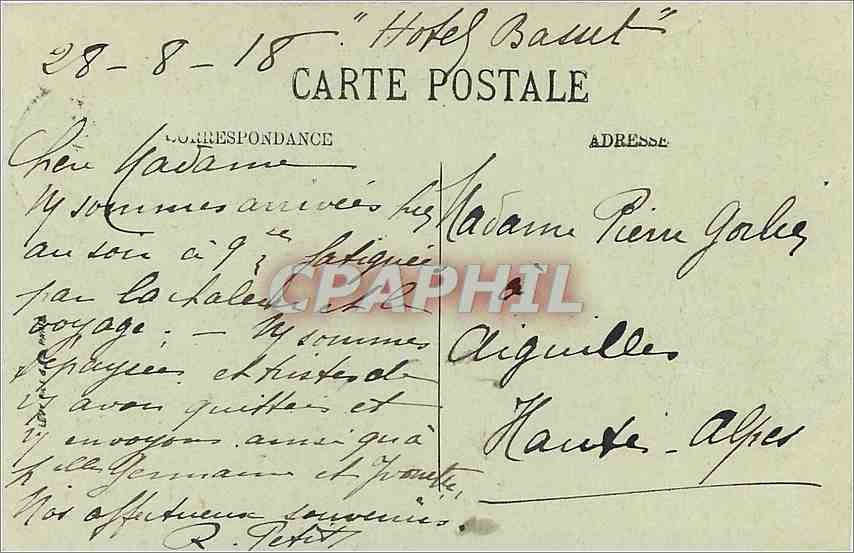 28-8-18 "Hotel Basset"
CARTE POSTALE
CORRESPONDANCE
ADRESSE
Chère Madame
Ns sommes arrivées hier
au soir à 9h ½ fatiguées
par la chaleur et le
voyage. — Ns sommes
dépaysées et tristes de
vs avoir quittées et
vs envoyons ainsi qu'à
Melles Germaine et Yvonette,
Nos affectueux souvenirs.
R. Petit
Madame Pierre
à
Aiguilles
Hautes-Alpes
CPAPHIL